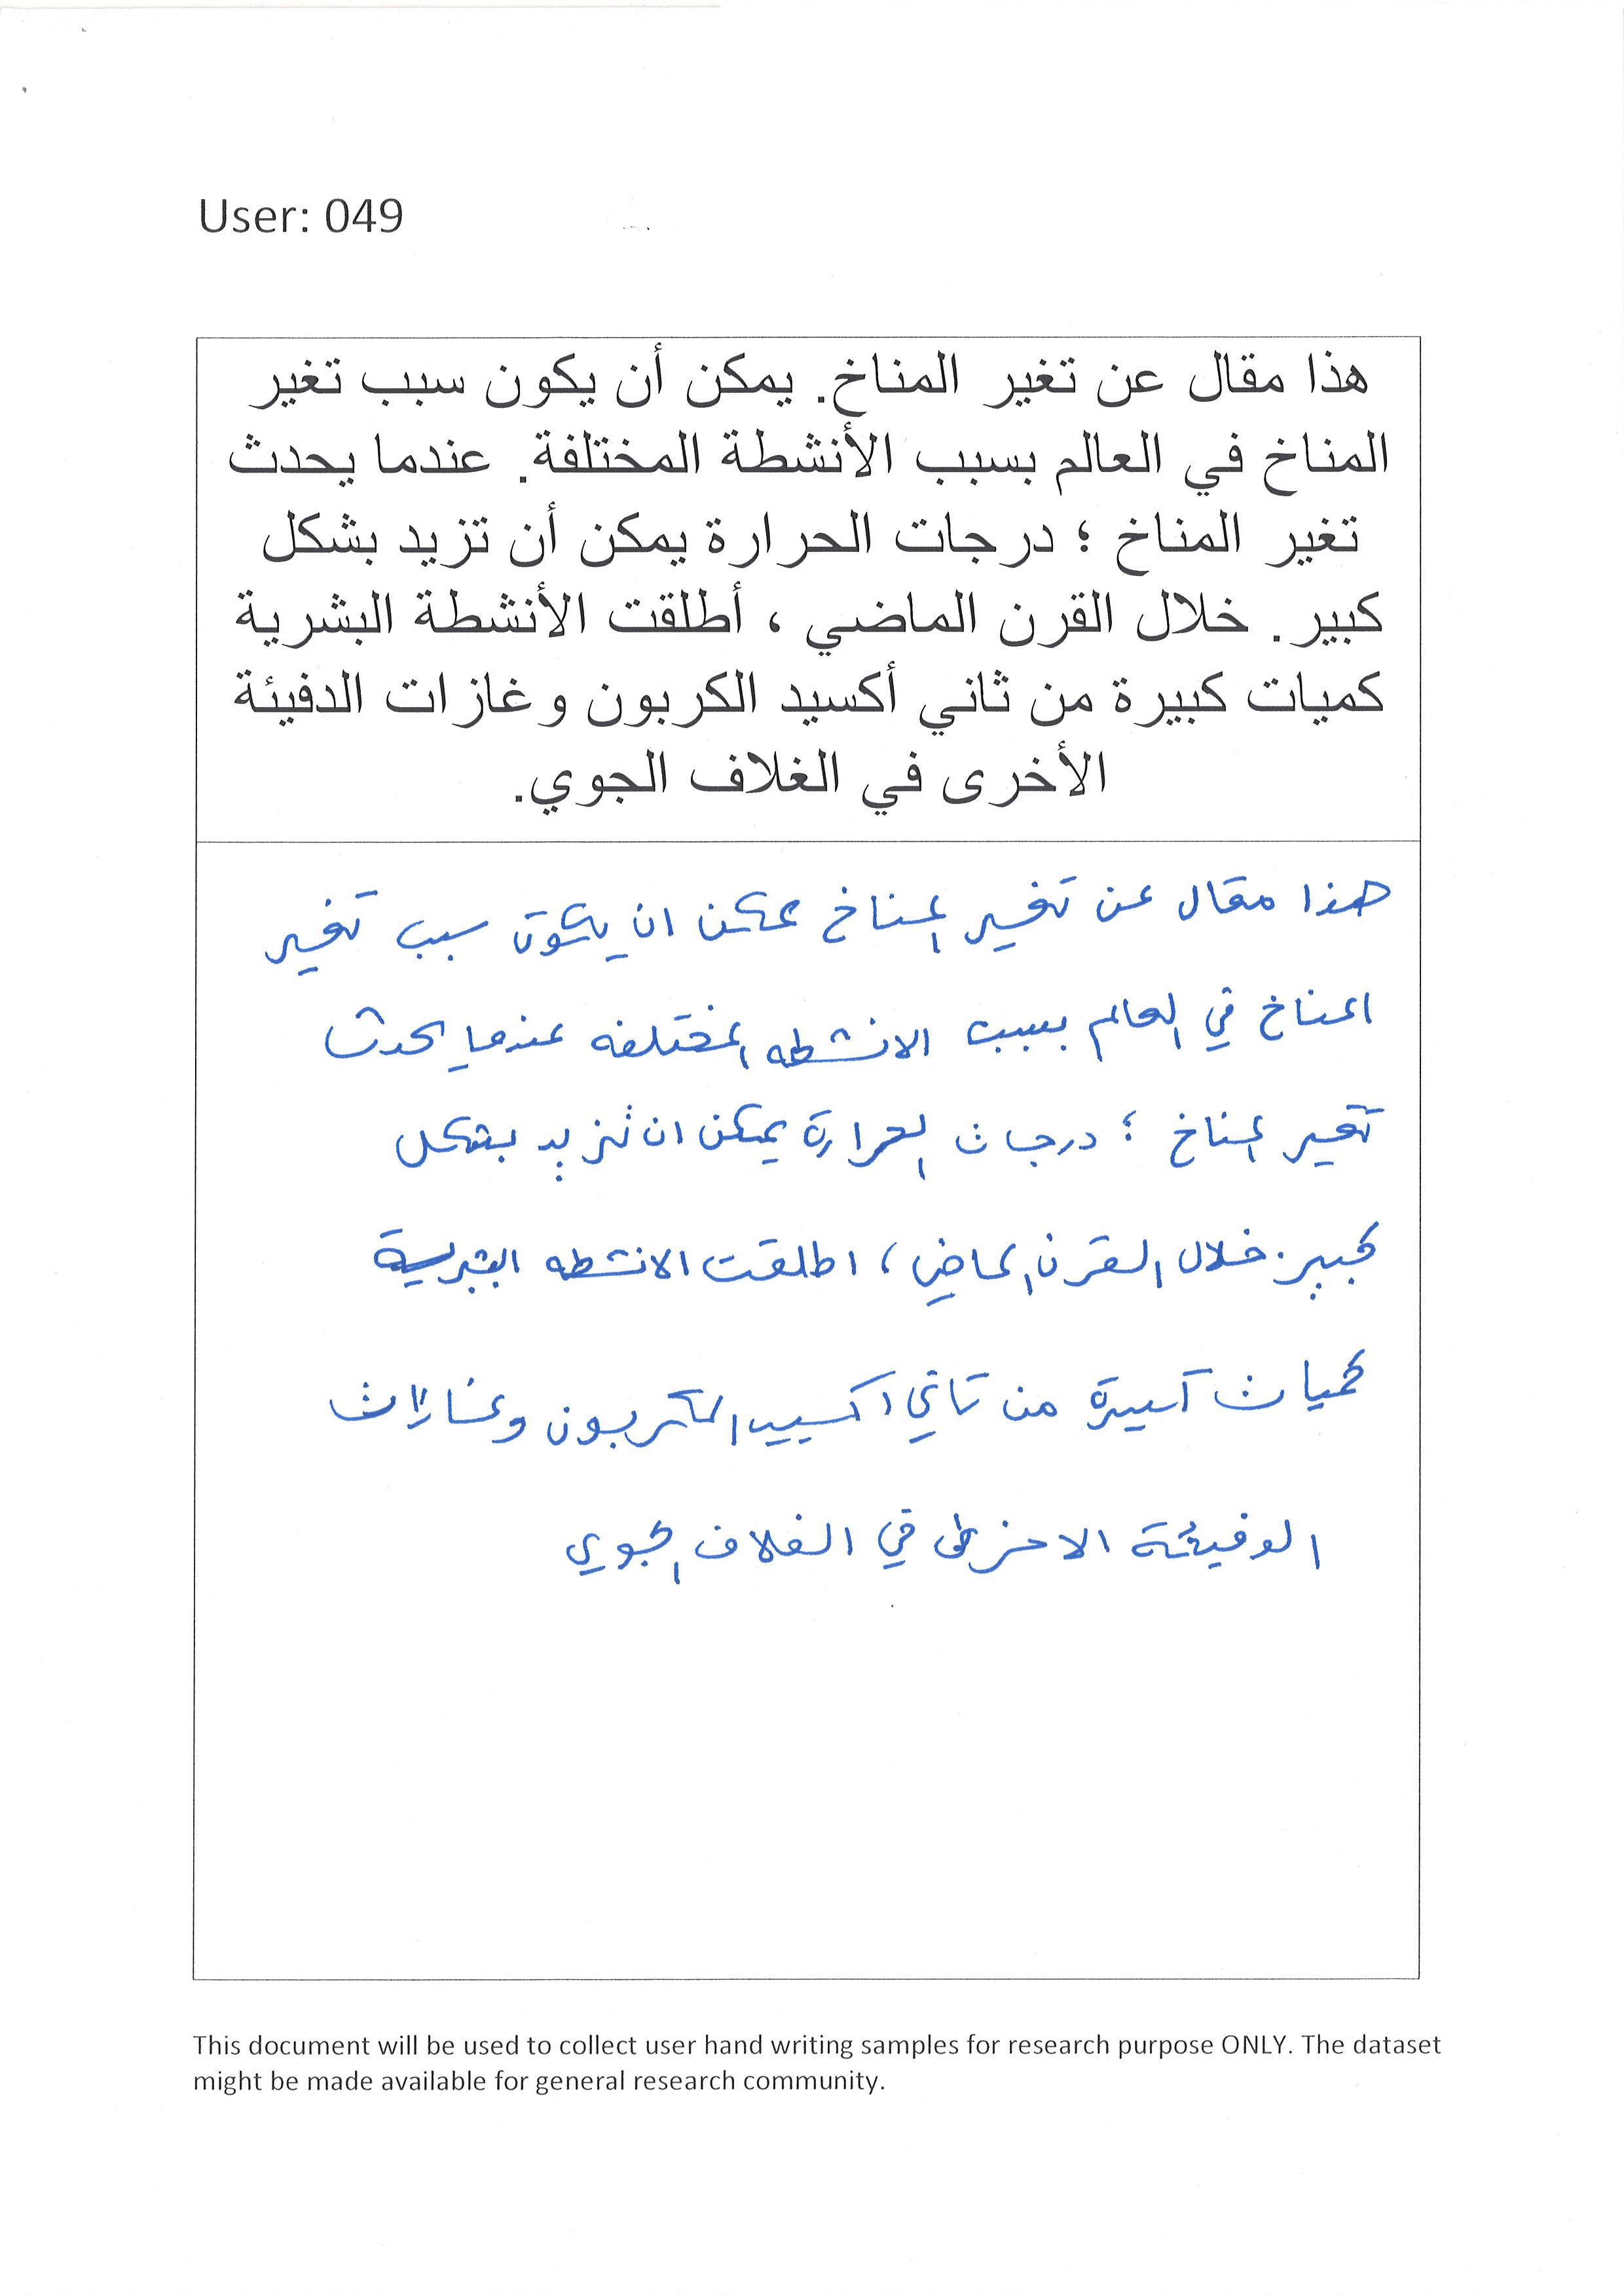 User: 049
هذا مقال عن تغير المناخ. يمكن أن يكون سبب تغير
المناخ في العالم بسبب الأنشطة المختلفة. عندما يحدث
تغير المناخ ؛ درجات الحرارة يمكن أن تزيد بشكل
كبير. خلال القرن الماضي ، أطلقت الأنشطة البشرية
كميات كبيرة من ثاني أكسيد الكربون و غازات الدفيئة
الأخرى في الغلاف الجوي.
هذا مقال عن تغير المناخ يمكن ان يكون سبب تغير
المناخ في العالم بسبب الانشطه المختلفه عندما يحدث
تغير المناخ ؛ درجات الحرارة يمكن ان تزيد بشكل
كبير. خلال القرن الماضي ، اطلقت الانشطه البشرية
كميات كبيرة من ثاني اكسيد الكربون وغازات
الدفيئة الاخرى في الغلاف الجوي
This document will be used to collect user hand writing samples for research purpose ONLY. The dataset
might be made available for general research community.